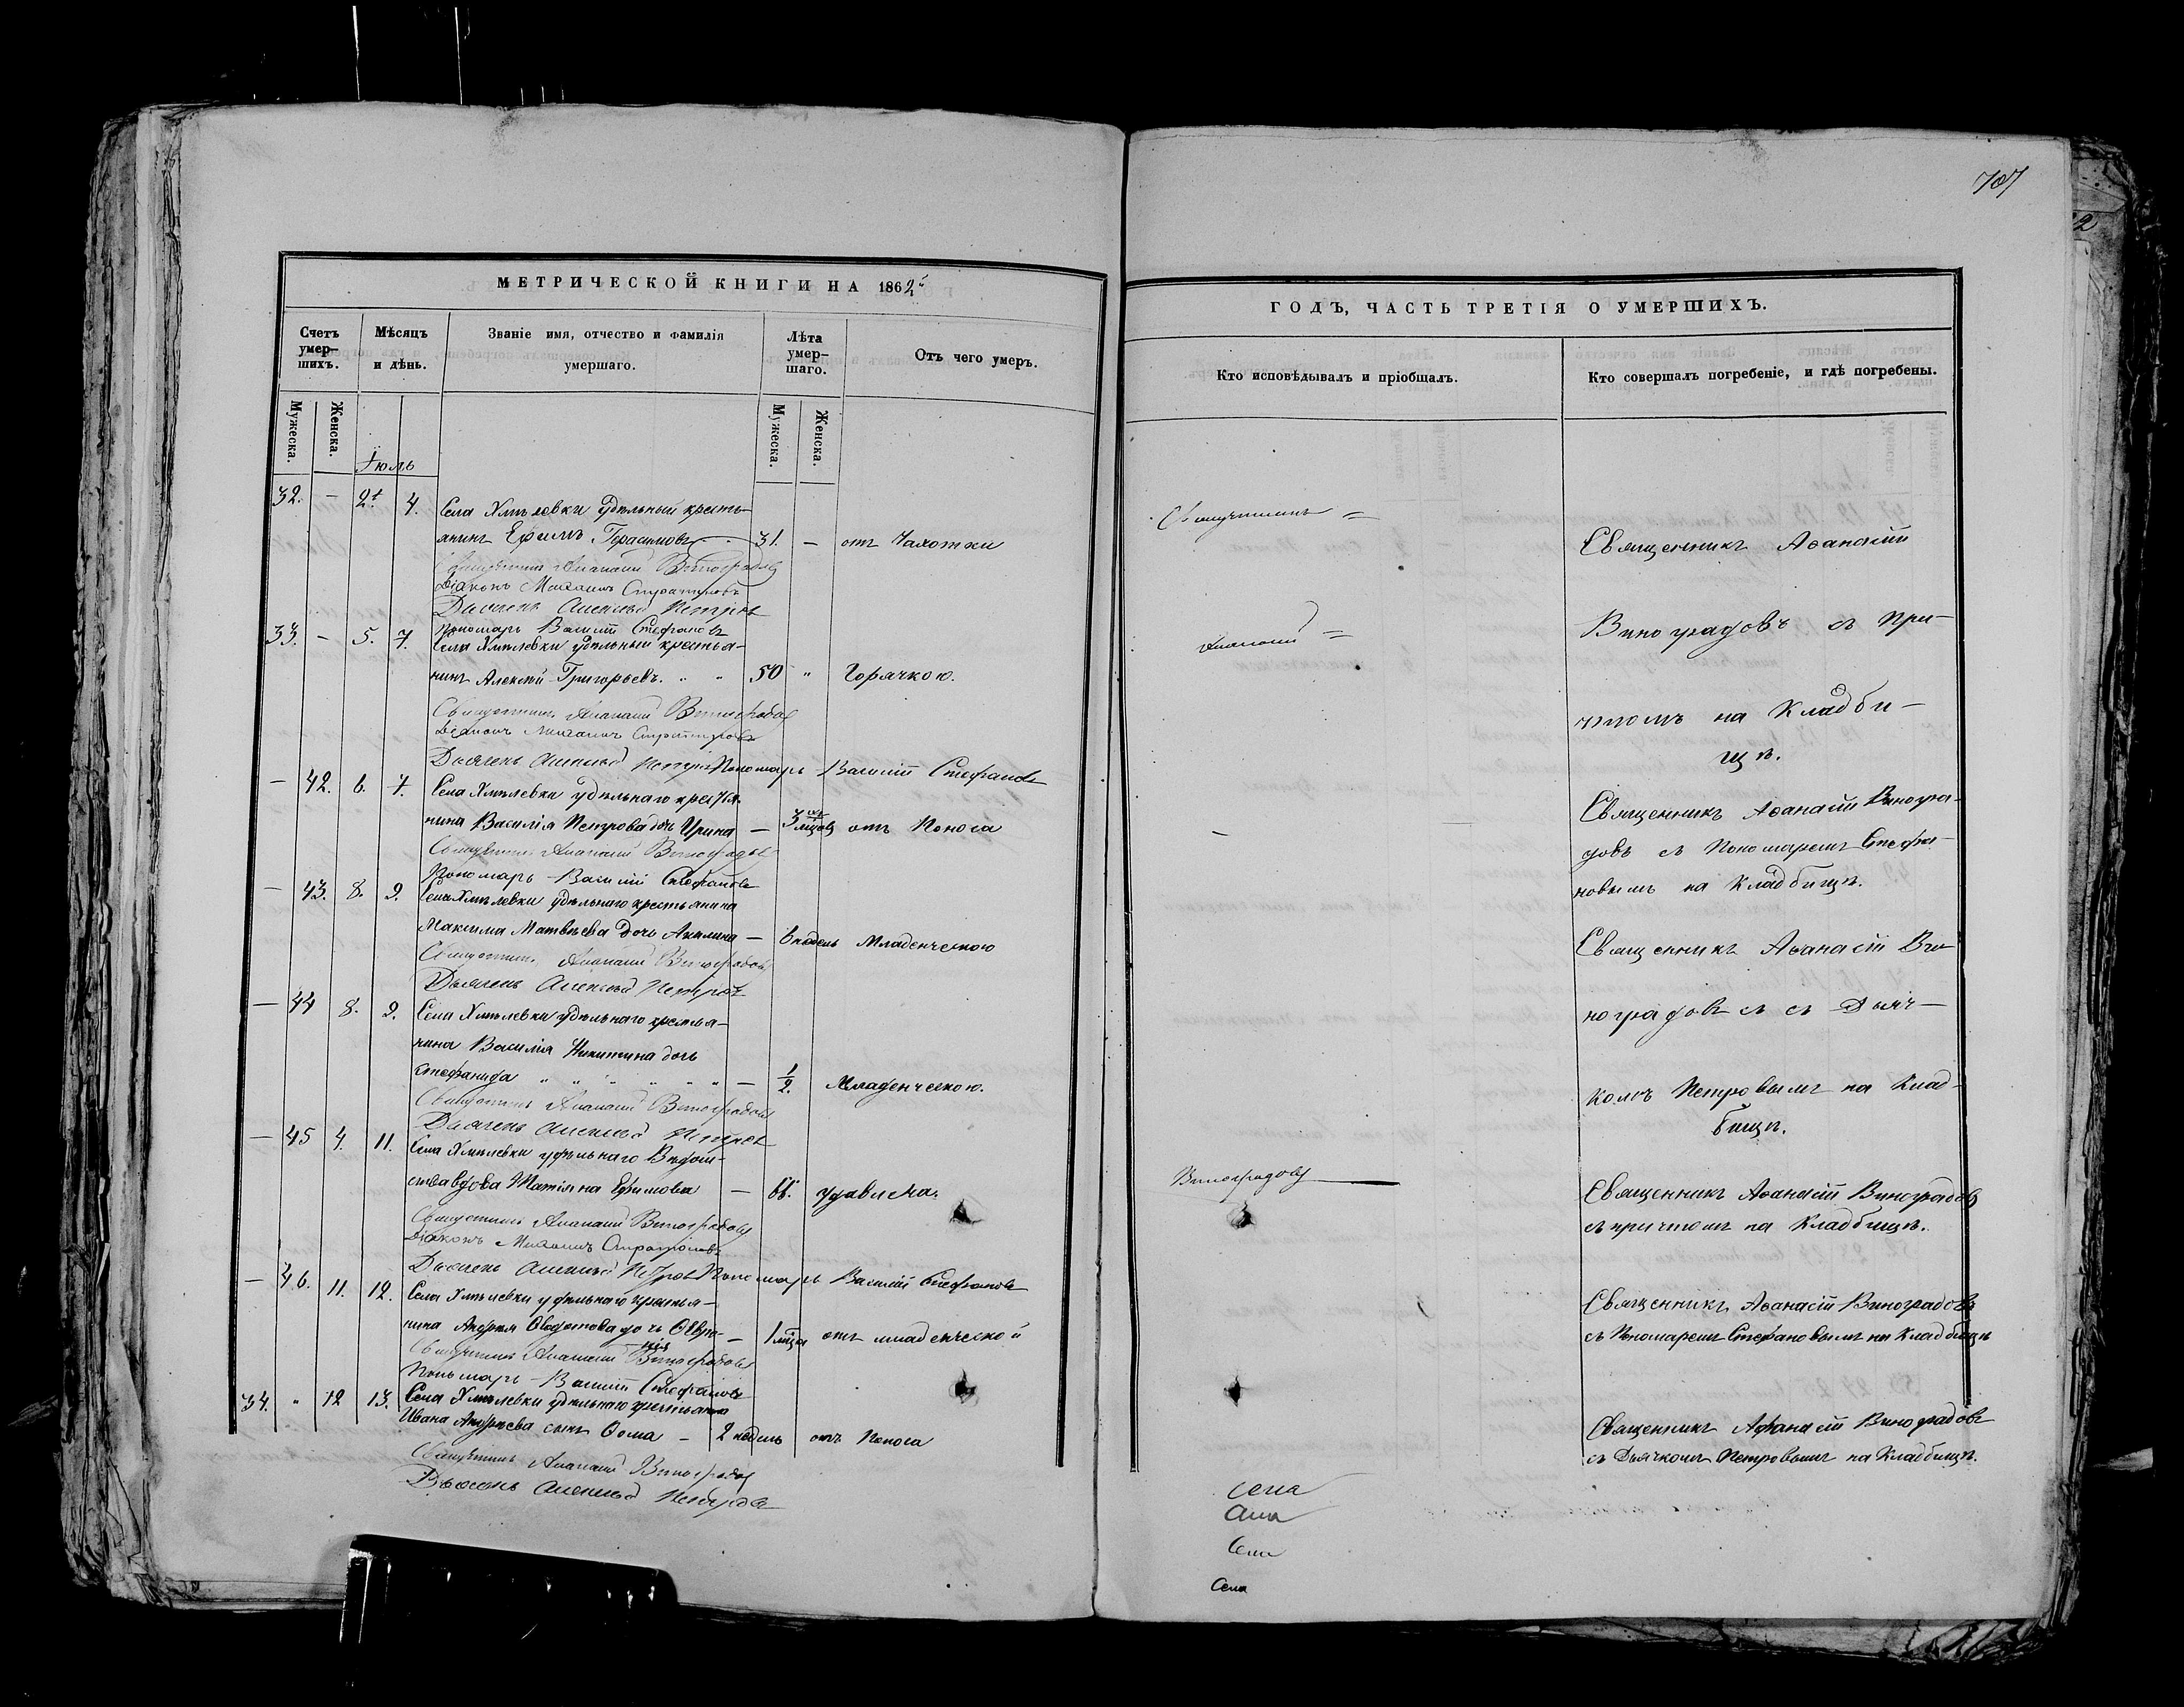 707
МЕТРИЧЕСКОЙ КНИГИ НА 1862
Счетъ умер- шихъ.
Мѣсяцъ и дѣнь.
Званіе имя, отчество и фамилія умершаго.
Лѣта умер- шаго.
Отъ чего умеръ.
Мужеска.
Женска.
Мужеска.
Женска.
Іюль
32. — 2 4. Села Хмѣлевки удѣльный кресть-
янинъ Ефимъ Герасимовъ 31. — отъ Чахотки
Священникъ Аѳанасій Виноградовъ
Діаконъ Михаилъ
Дьячекъ Алексѣй Петровъ
Пономарь Василій Стефановъ
33. — 5. 7. Села Хмѣлевки удѣльный крестья-
нинъ Алексѣй Григорьевъ. " " 50 " Горячкою.
Священникъ Аѳанасій Виноградовъ
Діаконъ Михаилъ
Дьячекъ Алексѣй Петровъ Пономарь Василій Стефановъ
— 42. 6. 7. Села Хмѣлевки удѣльнаго крестья-
нина Василія Петрова дочь Ирина — 3 мѣсяцовъ отъ Поноса
Священникъ Аѳанасій Виноградовъ
Пономарь Василій Стефановъ
— 43. 8. 9. Села Хмѣлевки удѣльнаго крестьянина
Максима Матвѣева дочь Акилина — недель Младенческою
Священникъ Аѳанасій Виноградовъ
Дьячекъ Алексѣй Петровъ
— 44 8. 9. Села Хмѣлевки удѣльнаго крестья-
нина Василія Никитина дочь
Стефанида " " " " " " — 1/2. Младенческою.
Священникъ Аѳанасій Виноградовъ
Дьячекъ Алексѣй Петровъ
— 45 4. 11. Села Хмѣлевки удѣльнаго Вѣдом-
ства вдова Татіяна Ефимова — 66. удавиласъ.
Священникъ Аѳанасій Виноградовъ
Діаконъ Михаилъ
Дьячекъ Алексѣй Петровъ Пономарь Василій Стефановъ
— 46. 11. 12. Села Хмѣлевки удѣльнаго крестья-
нина Андрея Ѳедотова дочь Ѳевро-
нія — 1 мѣсяца отъ младенческой
Священникъ Аѳанасій Виноградовъ
Пономарь Василій Стефановъ
34. " 12 13. Села Хмѣлевки удѣльнаго крестьянина
Ивана Андрѣева сынъ Ѳома — 2 недель отъ Поноса
Священникъ Аѳанасій Виноградовъ
Дьячекъ Алексѣй Петровъ
ГОДЪ, ЧАСТЬ ТРЕТІЯ О УМЕРШИХЪ.
Кто исповѣдывалъ и пріобщалъ.
Кто совершалъ погребеніе, и гдѣ погребены.
Священникъ =
Священникъ Аѳанасій
Аѳанасій =
Виноградовъ съ При-
чтомъ на Кладби-
щѣ.
Священникъ Аѳанасій Виногра-
довъ съ Пономаремъ Стефа-
новымъ на Кладбищѣ.
Священникъ Аѳанасій Ви-
ноградовъ съ съ Дьяч-
комъ Петровымъ на Клад-
бищѣ.
Виноградовъ
Священникъ Аѳанасій Виноградовъ
съ причтомъ на Кладбищѣ.
Священникъ Аѳанасій Виноградовъ
съ Пономаремъ Стефановымъ на Кладбищѣ
Священникъ Афанасій Виноградовъ
съ Дьячкомъ Петровымъ на Кладбищѣ.
Села
Села
Села